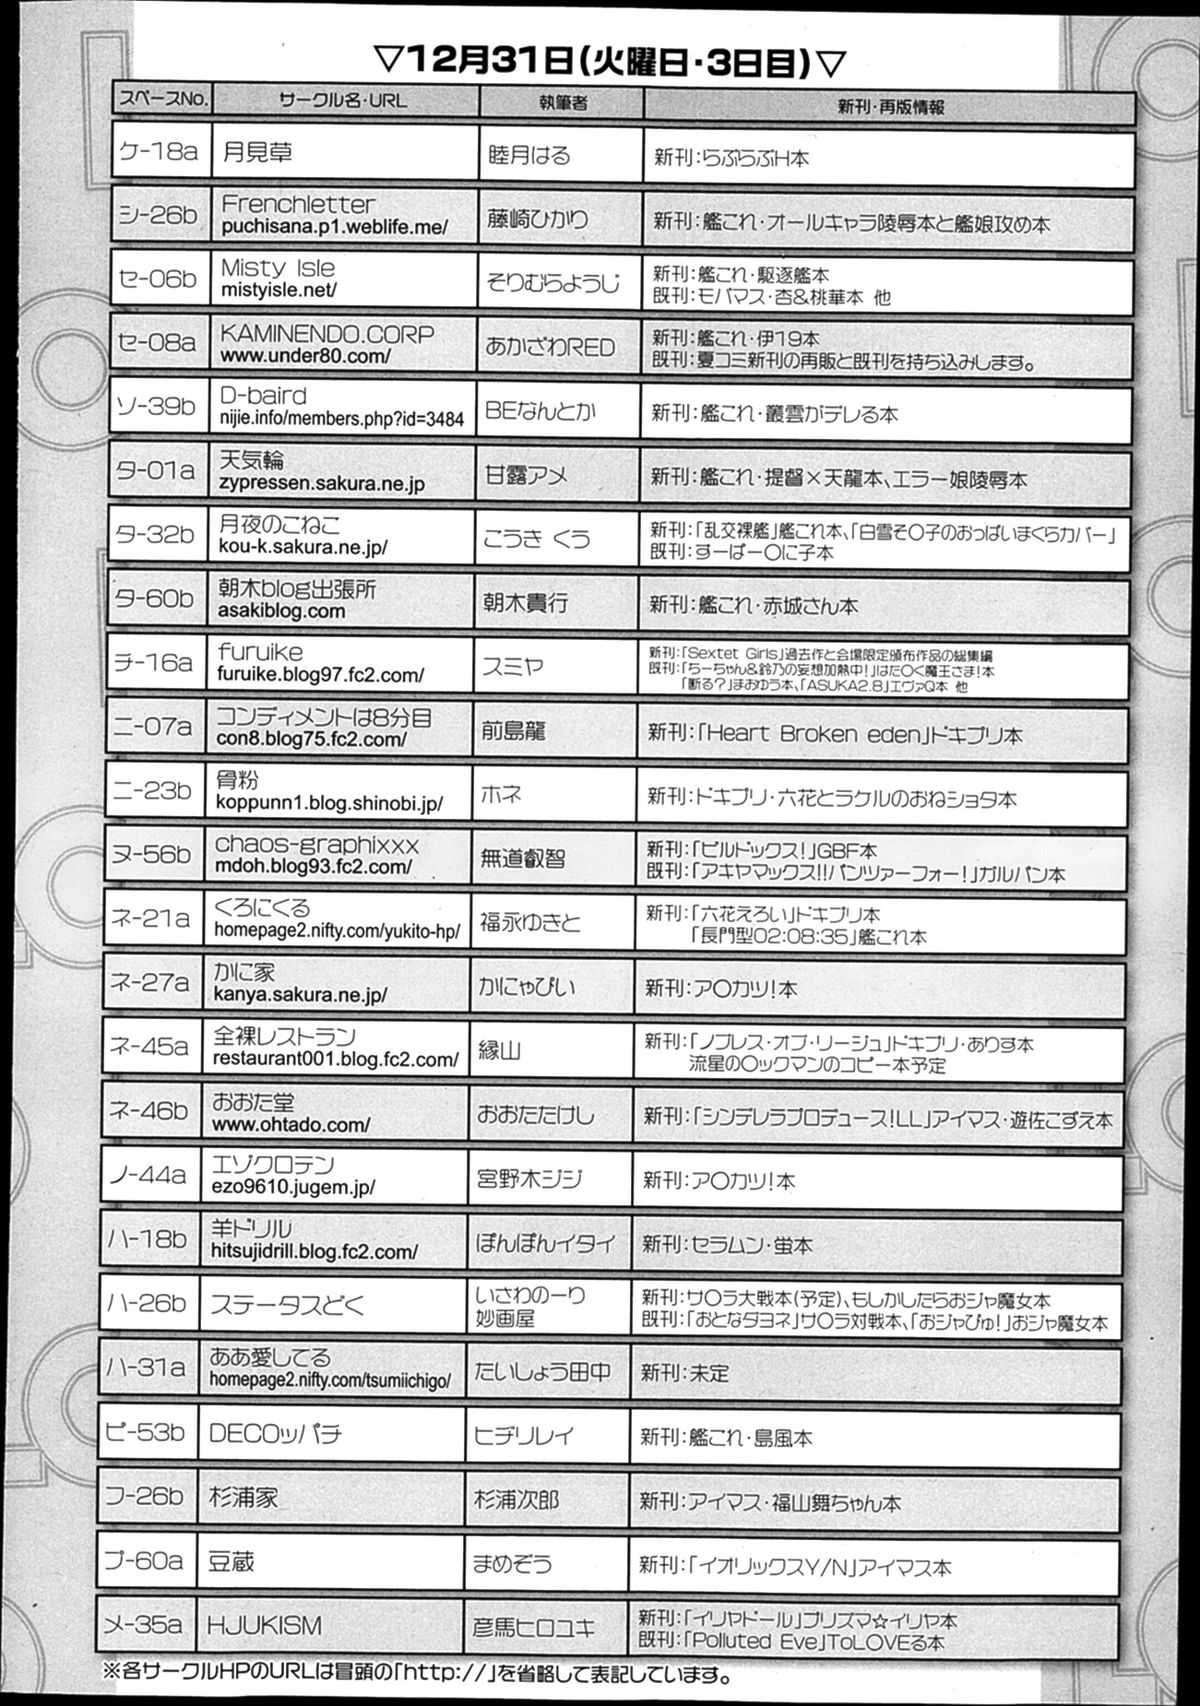 ▽12月31日(火曜日・3日目)▽
スペースNo. サークル名・URL 執筆者 新刊・再版情報
ケ-18a 月見草 睦月はる 新刊：らぶらぶH本
シ-26b Frenchletter 藤崎ひかり 新刊：艦これ・オールキャラ陵辱本と艦娘攻め本
puchisana.p1.weblife.me/
セ-06b Misty Isle そりむらようじ 新刊：艦これ・駆逐艦本
mistyisle.net/ 既刊：モバマス・杏&桃華本 他
セ-08a KAMINENDO.CORP あかざわRED 新刊：艦これ・伊19本
www.under80.com/ 既刊：夏コミ新刊の再販と既刊を持ち込みします。
ソ-39b D-baird BEなんとか 新刊：艦これ・叢雲がデレる本
nijie.info/members.php?id=3484
タ-01a 天気輪 甘露アメ 新刊：艦これ・提督×天龍本、エラー娘陵辱本
zypressen.sakura.ne.jp
タ-32b 月夜のこねこ こうき くう 新刊：「乱交裸艦」艦これ本、「白雪そ〇子のおっぱいまくらカバー」
kou-k.sakura.ne.jp/ 既刊：すーぱー〇に子本
タ-60b 朝木blog出張所 朝木貴行 新刊：艦これ・赤城さん本
asakiblog.com
チ-16a furuike スミヤ 新刊：「Sextet Girls」過去作と会場限定頒布作品の総集編
furuike.blog97.fc2.com/ 既刊：「ちーちゃん&鈴乃の妄想加熱中!」はた〇く魔王さま!本
「断る?」まおゆう本、「ASUKA2.8」エヴァQ本 他
ニ-07a コンディメントは8分目 前島龍 新刊：「Heart Broken eden」ドキプリ本
con8.blog75.fc2.com/
ニ-23b 骨粉 ホネ 新刊：ドキプリ・六花とラケルのおねショタ本
koppunn1.blog.shinobi.jp/
ヌ-56b chaos-graphixxx 無道叡智 新刊：「ビルドックス!」GBF本
mdoh.blog93.fc2.com/ 既刊：「アキヤマックス!!パンツァーフォー!」ガルパン本
ネ-21a くろにくる 福永ゆきと 新刊：「六花えろい」ドキプリ本
homepage2.nifty.com/yukito-hp/ 「長門型02:08:35」艦これ本
ネ-27a かに家 かにゃぴい 新刊：ア〇カツ!本
kanya.sakura.ne.jp/
ネ-45a 全裸レストラン 縁山 新刊：「ノブレス・オブ・リージュ」ドキプリ・ありす本
restaurant001.blog.fc2.com/ 流星の〇ックマンのコピー本予定
ネ-46b おおた堂 おおたたけし 新刊：「シンデレラプロデュース!LL」アイマス・遊佐こずえ本
www.ohtado.com/
ノ-44a エゾクロテン 宮野木ジジ 新刊：ア〇カツ!本
ezo9610.jugem.jp/
ハ-18b 羊ドリル ぽんぽんイタイ 新刊：セラムン・蛍本
hitsujidrill.blog.fc2.com/
ハ-26b ステータスどく いさわのーり 新刊：サ〇ラ大戦本(予定)、もしかしたらおジャ魔女本
妙画屋 既刊：「おとなダヨネ」サ〇ラ対戦本、「おジャぴゅ!」おジャ魔女本
ハ-31a ああ愛してる たいしょう田中 新刊：未定
homepage2.nifty.com/tsumiichigo/
ピ-53b DECOッパチ ヒヂリレイ 新刊：艦これ・島風本
フ-26b 杉浦家 杉浦次郎 新刊：アイマス・福山舞ちゃん本
プ-60a 豆蔵 まめぞう 新刊：「イオリックスY/N」アイマス本
メ-35a HJUKISM 彦馬ヒロユキ 新刊：「イリヤドール」プリズマ☆イリヤ本
既刊：「Polluted Eve」ToLOVEる本
※各サークルHPのURLは冒頭の「http://」を省略して表記しています。